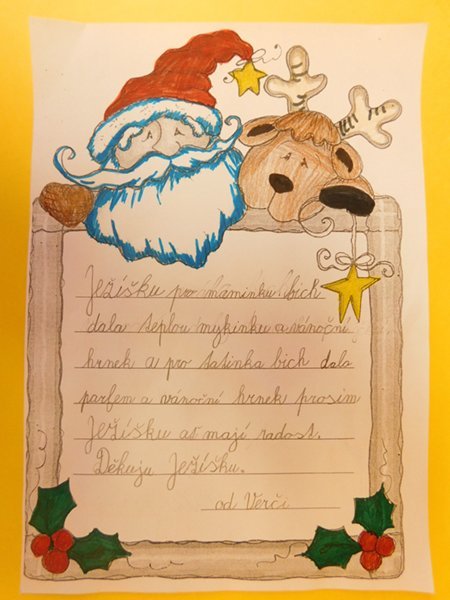 Ježíšku pro maminku bich
dala teplou mykinku a vánoční
hrnek a pro tatinka bich dala
parfem a vánoční hrnek prosim
Ježíšku ať mají radost.
Děkuju Ježíšku.
od Verči